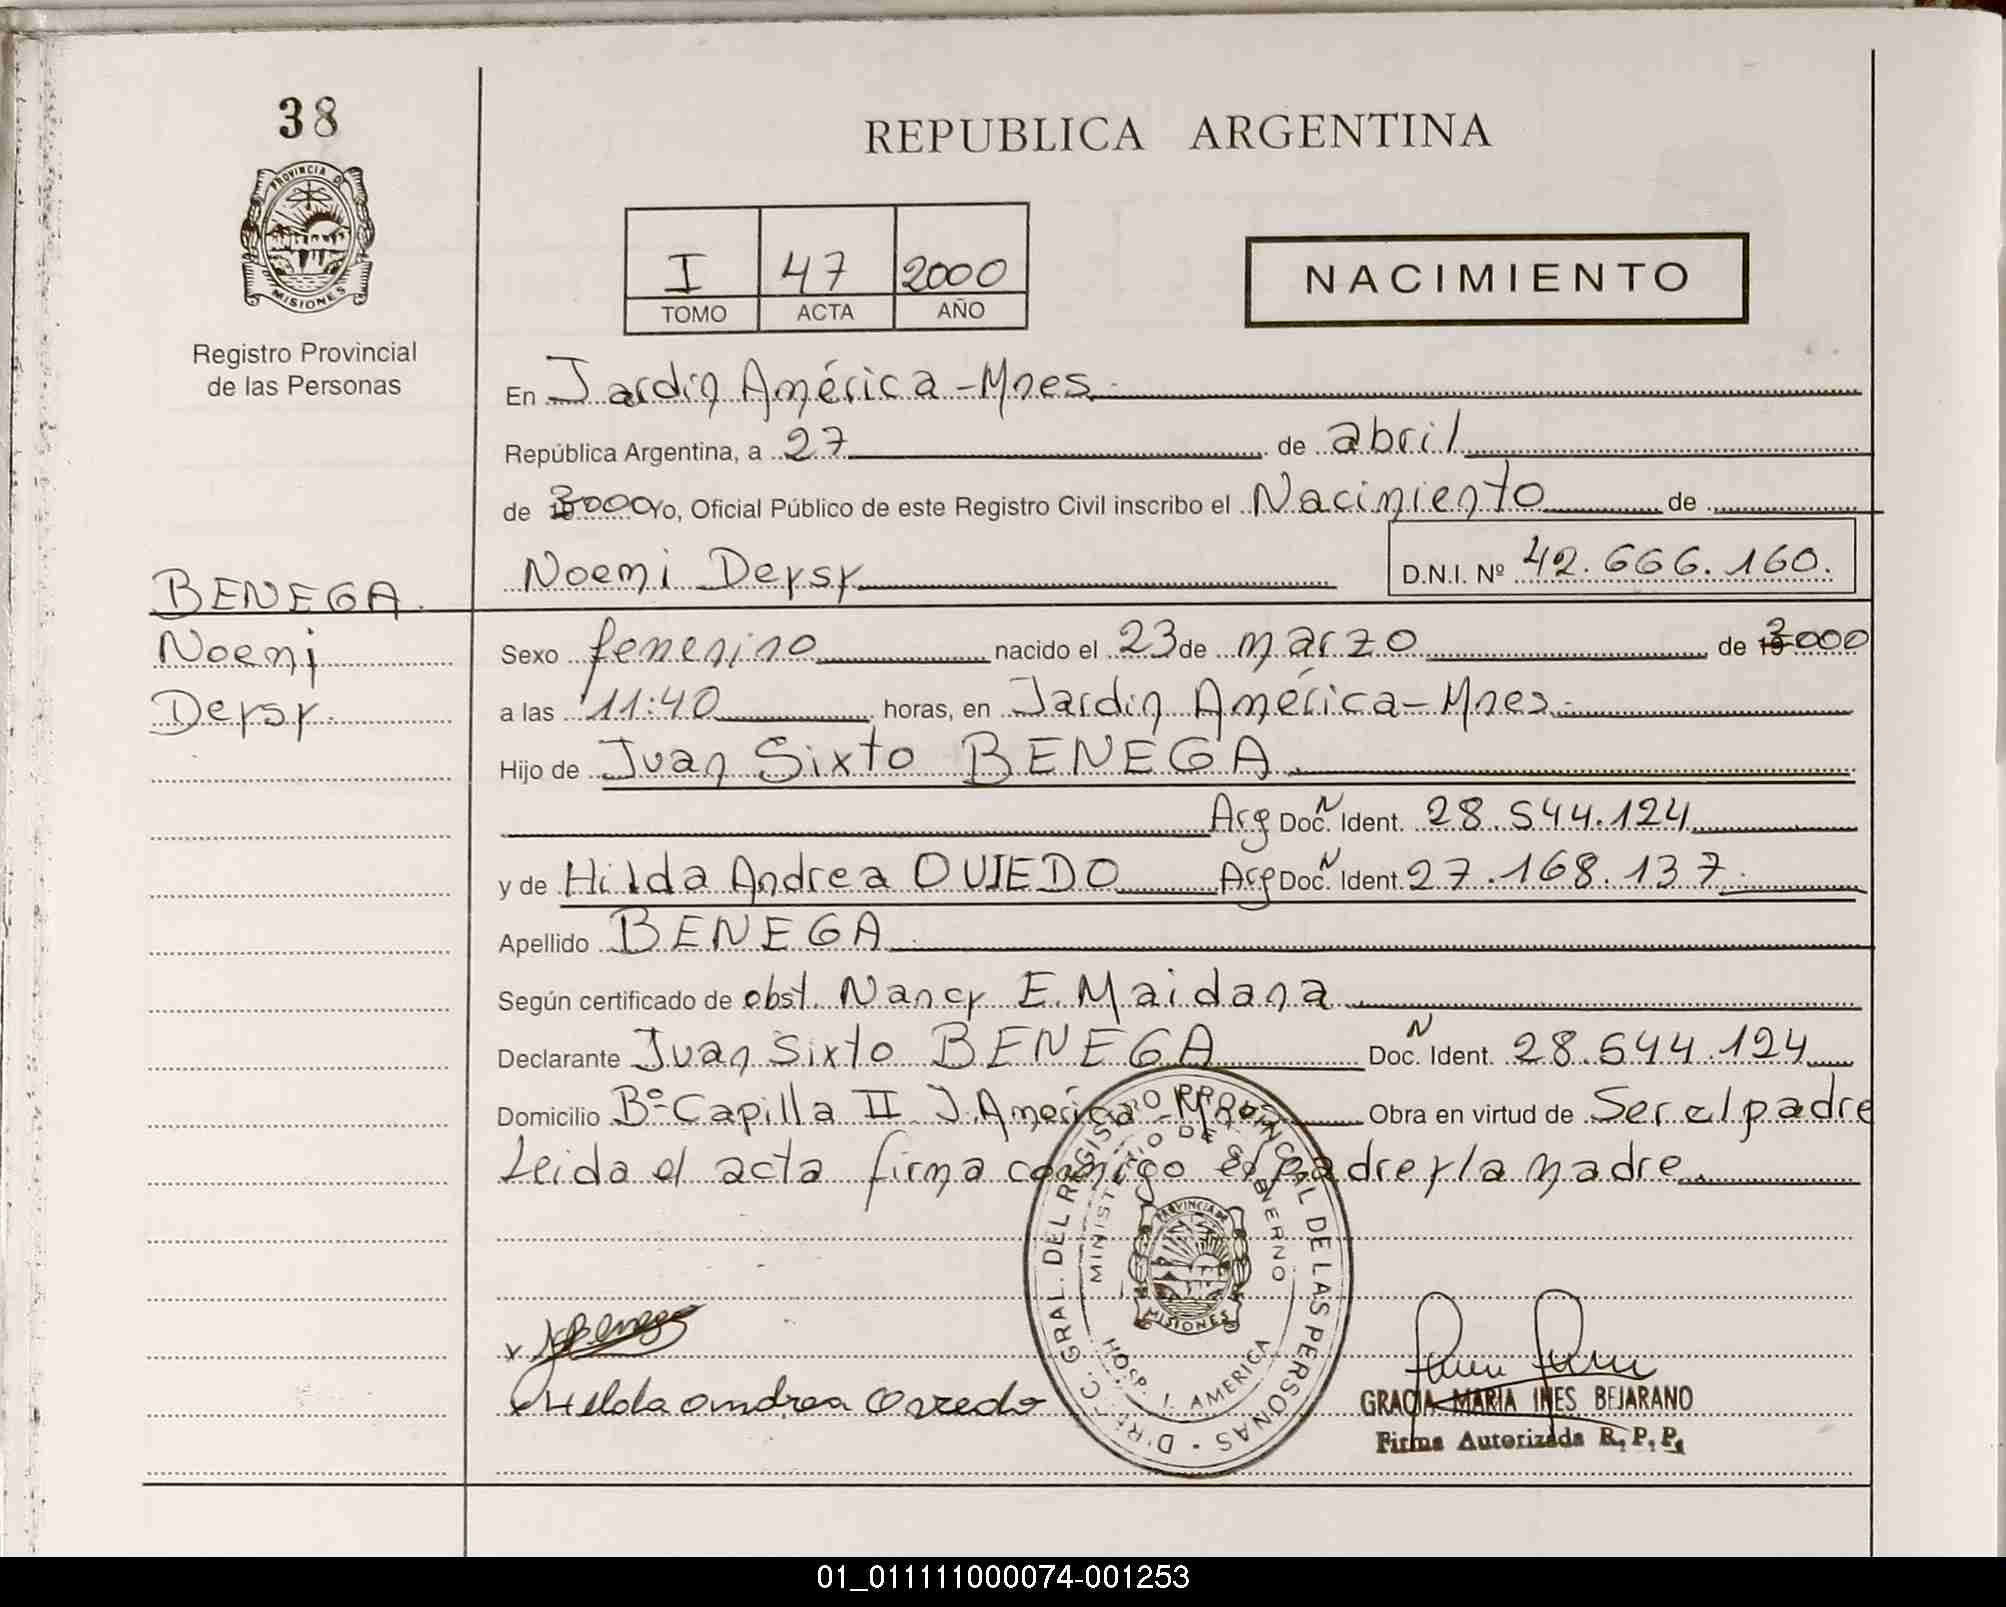 38
PROVINCIA D
MISIONES
Registro Provincial
de las Personas
REPUBLICA ARGENTINA
I 47 2000
TOMO ACTA AÑO
NACIMIENTO
En Jardin América - Mnes.
República Argentina, a 27 de abril
de 2000 Yo, Oficial Público de este Registro Civil inscribo el Nacimiento de
Noemi Deysy D.N.I. Nº 42.666.160.
BENEGA
Noemi
Deysy
Sexo femenino nacido el 23 de marzo de 2000
a las 11:40 horas, en Jardin América - Mnes.
Hijo de Juan Sixto BENEGA
Arg Doc. N Ident. 28.544.124
y de Hilda Andrea OVIEDO Arg Doc. N Ident. 27.168.137
Apellido BENEGA
Según certificado de obst. Nancy E. Maidana
Declarante Juan Sixto BENEGA Doc. N Ident. 28.544.124
Domicilio Bº Capilla II J. América - Mnes Obra en virtud de Ser el padre
Leida el acta firma conmigo el padre y la madre.
DIREC. GRAL. DEL REGISTRO PROVINCIAL DE LAS PERSONAS
MINISTERIO DE GOBIERNO
PROVINCIA DE
MISIONES
HOSP. J. AMERICA
x Benega
x Hilda Andrea Oviedo
GRACIA MARIA INES BEJARANO
Firma Autorizada R. P. P.
01_011111000074-001253